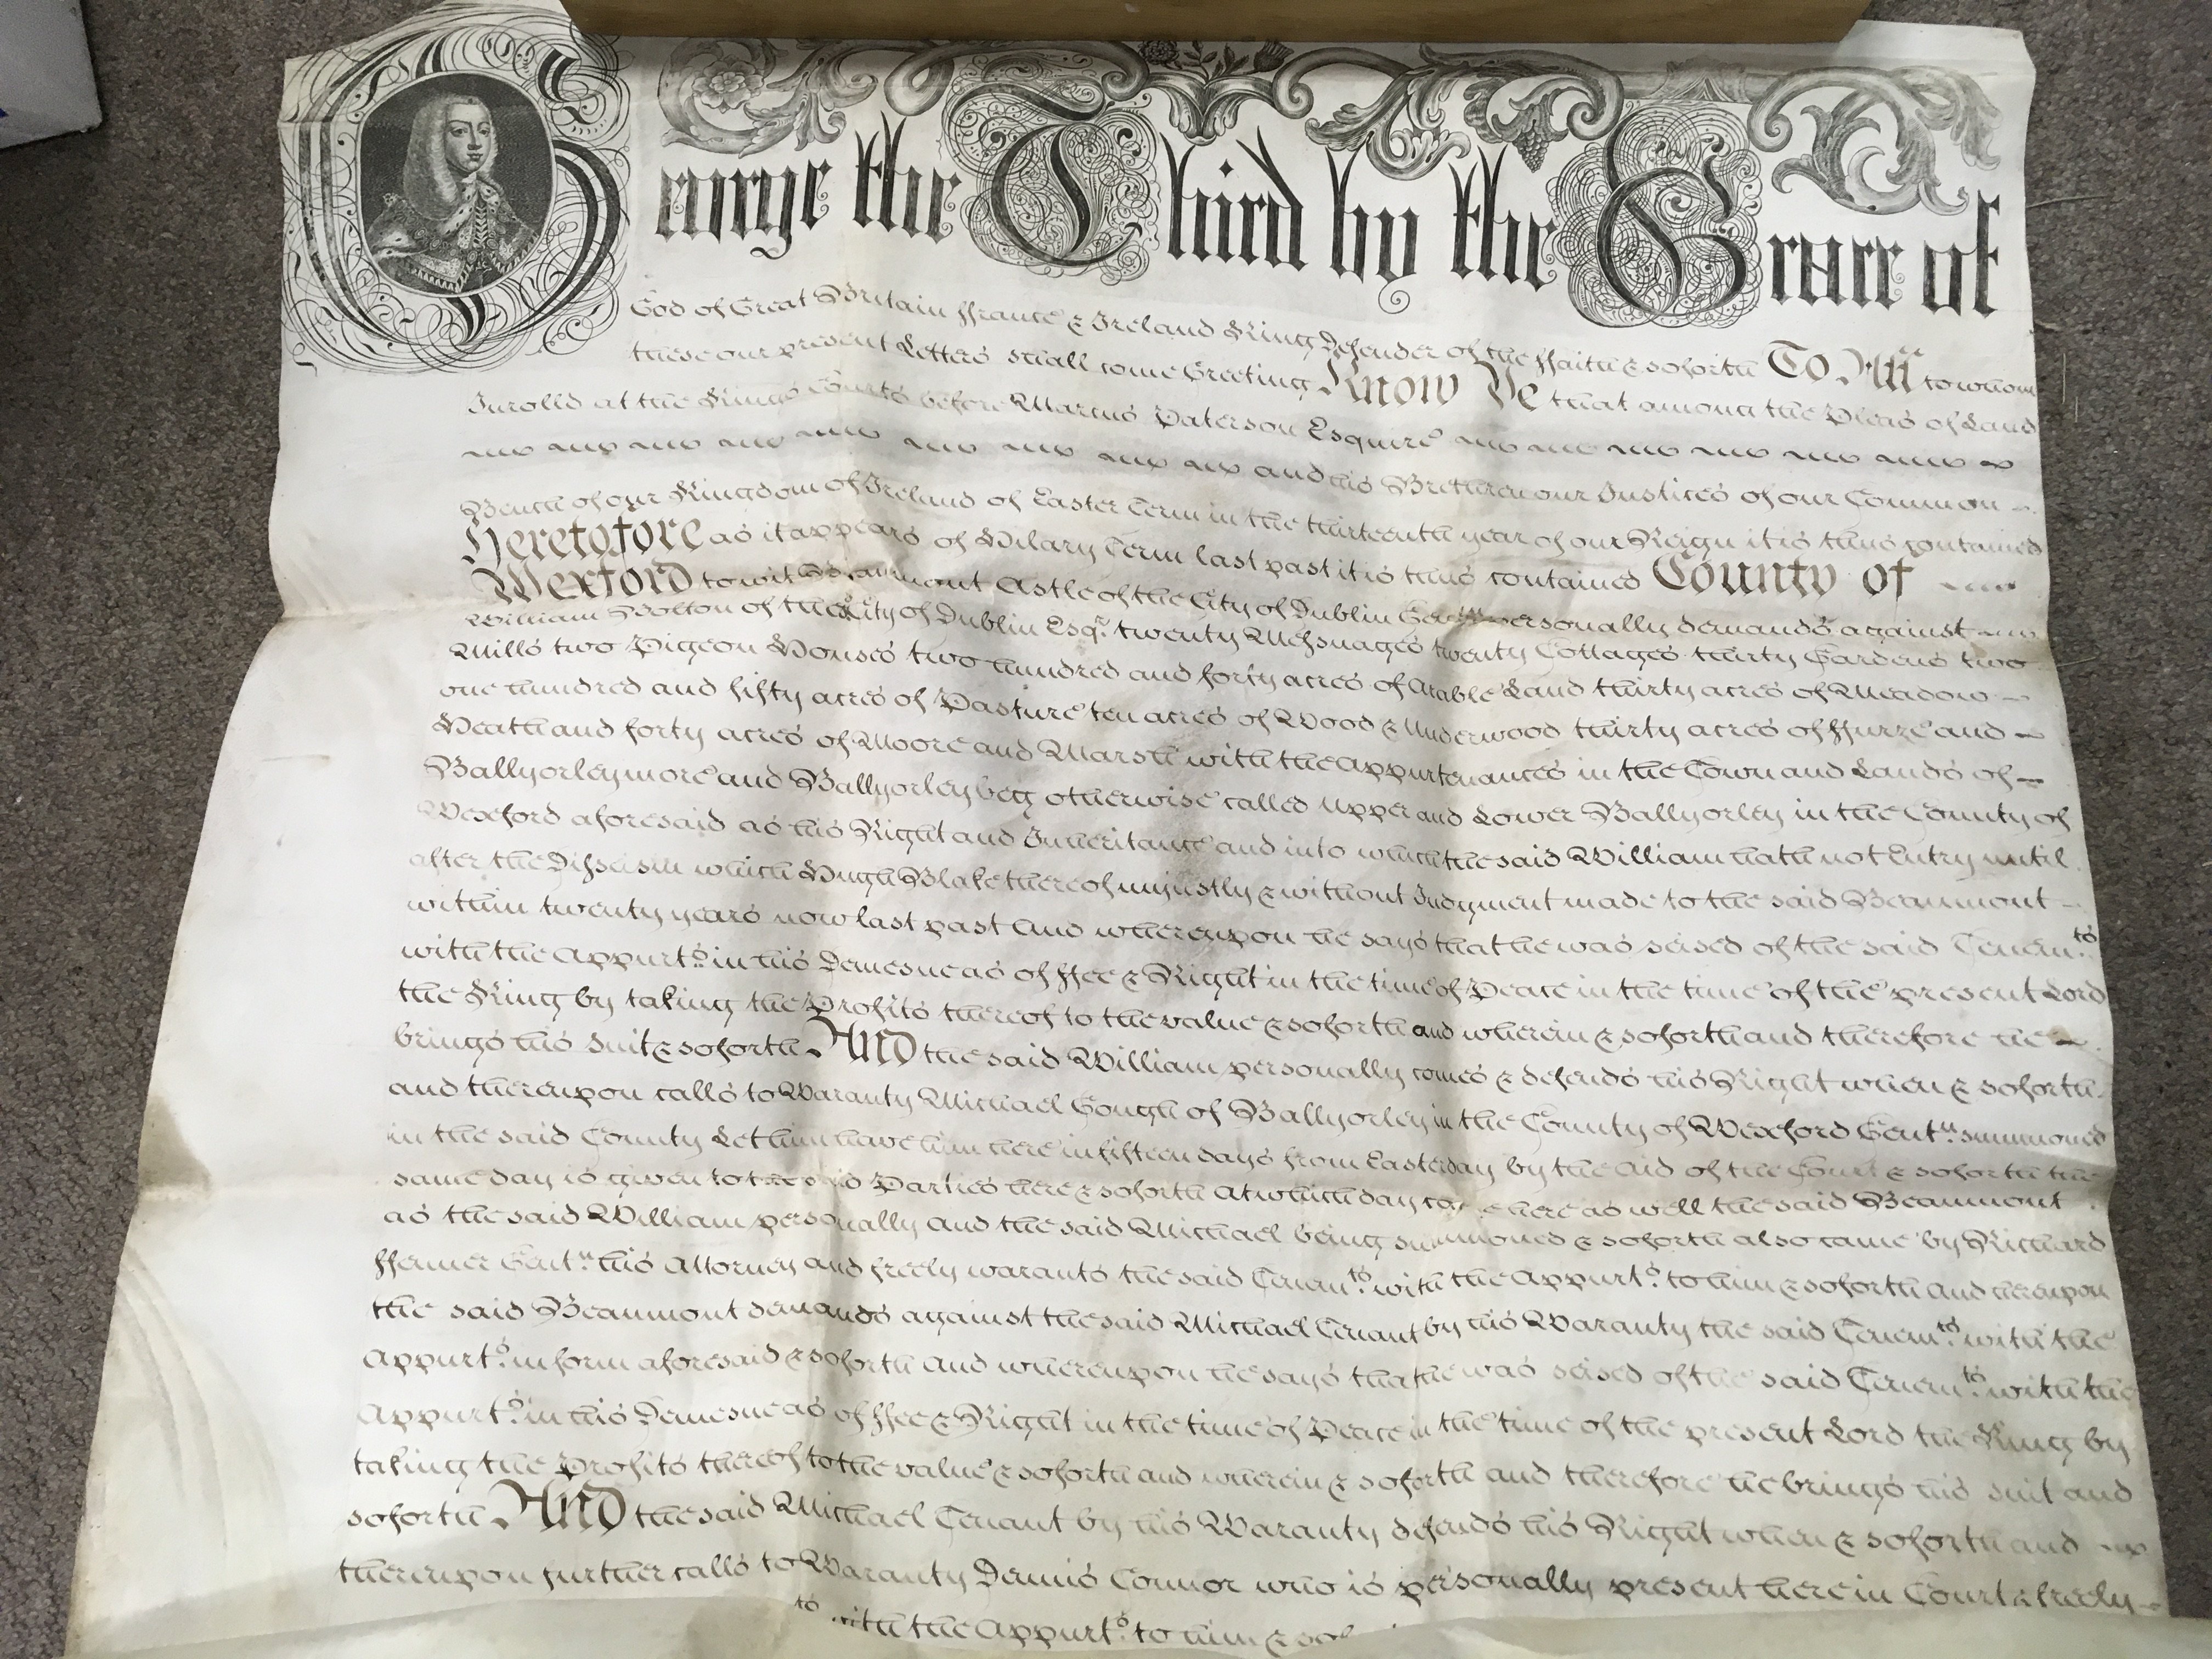 George the Third by the Grace of
God of Great Britain ffrance & Ireland King Defender of the ffaith & soforth To All to whom
these our present Letters shall come Greeting Know Ye that among the Pleas of Land
Inrolld at the Kings Courts before Marcus Paterson Esquire
and his Brethren our Justices of our Common
Bench of our Kingdom of Ireland of Easter Term in the thirteenth year of our Reign it is thus contained
Heretofore as it appears of Hilary Term last past it is thus contained County of
Wexford to wit Beaumont Astle of the City of Dublin personally demands against
William Bolton of the City of Dublin Esqr. twenty Messuages twenty Cottages thirty Gardens two
Mills two Pigeon Houses two hundred and forty acres of Arable Land thirty acres of Meadow
one hundred and fifty acres of Pasture ten acres of Wood & Underwood thirty acres of ffurze and
Heath and forty acres of Moore and Marsh with the Appurtenances in the Town and Lands of
Ballyorleymore and Ballyorleybeg otherwise called Upper and Lower Ballyorley in the County of
Wexford aforesaid as his Right and Inheritance and into which the said William hath not Entry until
after the Disseisin which Hugh Blake thereof unjustly & without Judgment made to the said Beaumont
within twenty years now last past And whereupon he says that he was seised of the said Tenemts.
with the Appurts. in his Demesne as of ffee & Right in the time of Peace in the time of the present Lord
the King by taking the Profits thereof to the value & soforth and wherein & soforth and therefore he
brings his Suit & soforth And the said William personally comes & defends his Right when & soforth
and thereupon calls to Waranty Michael Gough of Ballyorley in the County of Wexford Gentn. summoned
in the said County Let him have him here in fifteen days from Easterday by the Aid of the Court & soforth the
same day is given to the said Parties here & soforth At which day came here as well the said Beaumont
as the said William personally and the said Michael being summoned & soforth also came by Richard
ffenner Gentn. his Attorney and freely warants the said Tenemts. with the Appurts. to him & soforth And thereupon
the said Beaumont demands against the said Michael Tenant by his Waranty the said Tenemts. with the
Appurts. in form aforesaid & soforth And whereupon he says that he was seised of the said Tenemts. with the
Appurts. in his Demesne as of ffee & Right in the time of Peace in the time of the present Lord the King by
taking the Profits thereof to the value & soforth and wherein & soforth and therefore he brings his suit and
soforth And the said Michael Tenant by his Waranty defends his Right when & soforth and
thereupon further calls to Waranty Dennis Connor who is personally present here in Court & freely
with the Appurts. to him &